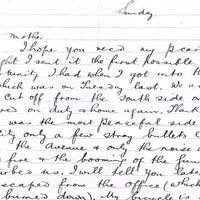 Sunday.
Mother
I hope you recd my p.car
ght I sent it the first possible
tunity I had when I got into H
which was on Tuesday last. We w
cut off from the South side on
ed on duty there again. Than
was the most peaceful side
ity only a few stray bullets
the Avenue & only the noise
fire & the booming of the gun
urbed us, I will tell you later
scaped from the Office (which
burned down). My bicycle is